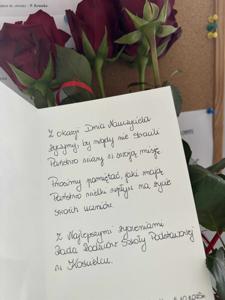 Z okazji Dnia Nauczyciela
życzymy, by nigdy nie stracili
Państwo wiary w swoją misję.
Prosimy pamiętać, jaki mają
Państwo wielki wpływ na życie
swoich uczniów.
Z Najlepszymi życzeniami
Rada Rodziców Szkoły Podstawowej
w